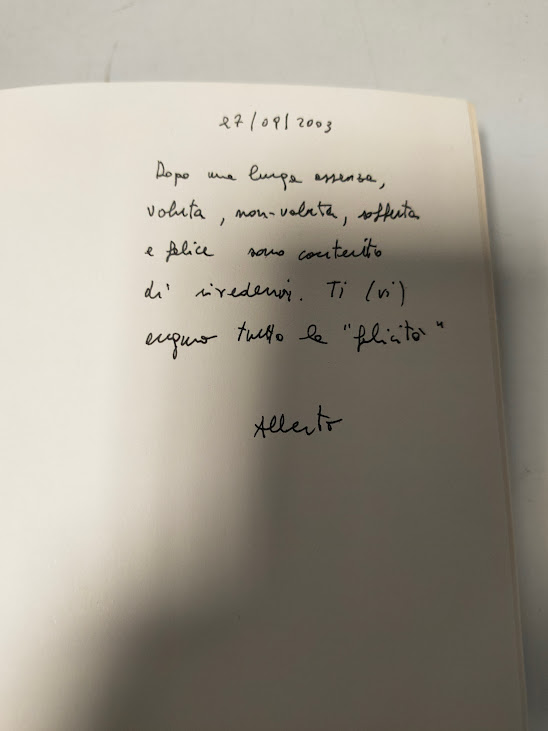 27/09/2003
Dopo una lunga assenza,
voluta, non-voluta, sofferta
e felice sono contento
di rivedervi. Ti (vi)
auguro tutta la "felicità"
Alberto